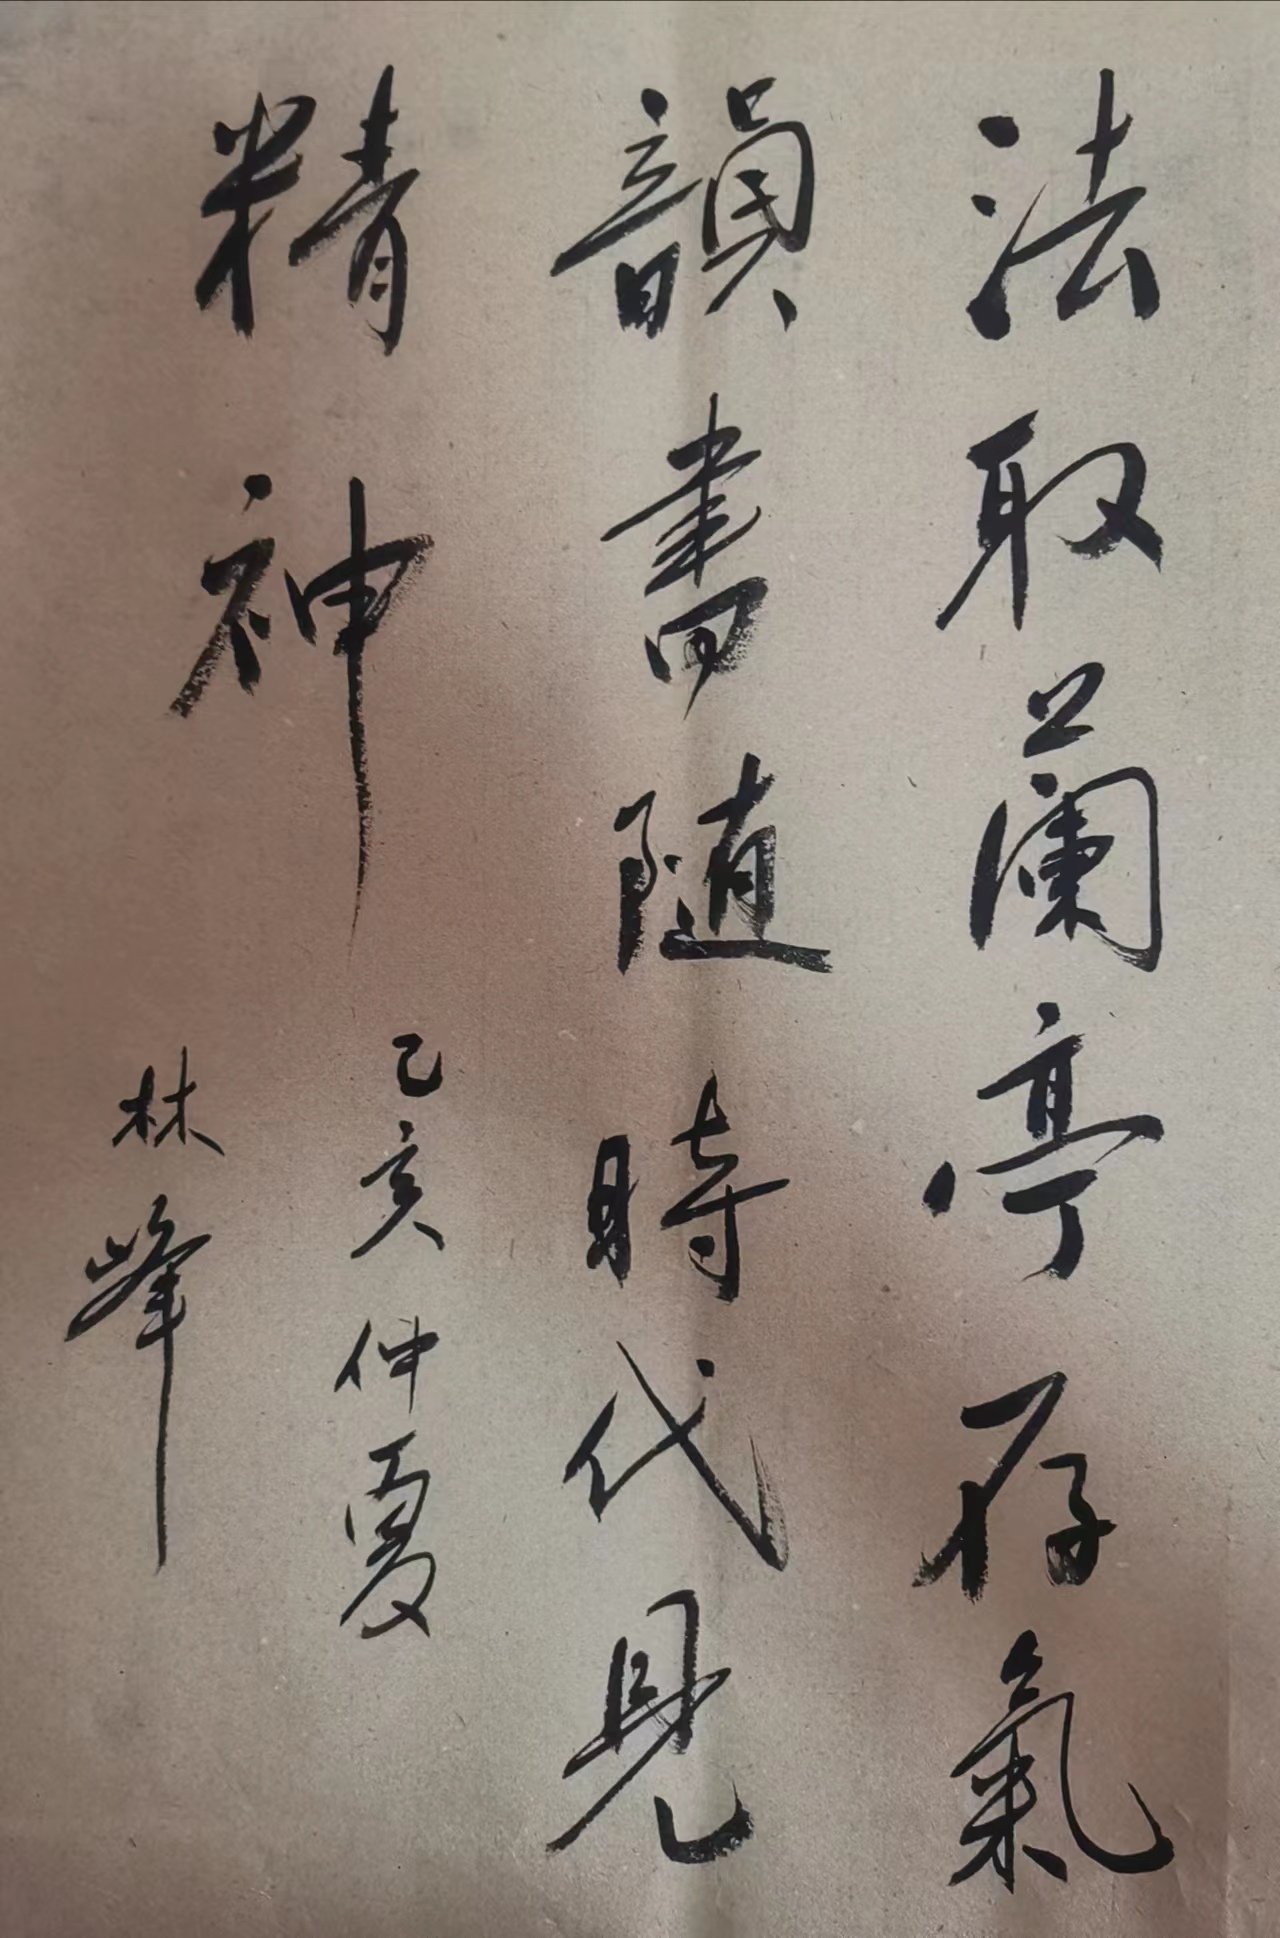 法取蘭亭存氣
韻書随時代見
精神
己亥仲夏
林峰